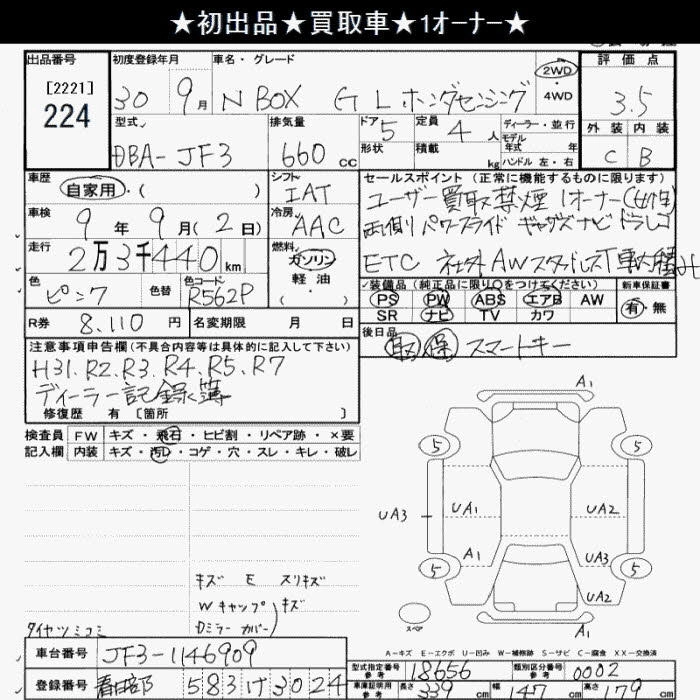 ★初出品★買取車★1オーナー★
出品番号 初度登録年月 車名・グレード 評価点
[2221]
224
30 9月 N BOX G L ホンダセンシング 2WD 4WD 3.5
型式 排気量 ドア 5 定員 4人 ディーラー・並行
モデル年式 年式
外装 内装
DBA-JF3 660cc 形状 積載 kg ハンドル 左・右 C B
車歴 自家用・( ) シフト IAT
セールスポイント (正常に機能するものに限ります)
ユーザー買取 禁煙 1オーナー(女性)
車検 9年9月(2日) 冷房 AAC
両側パワースライド ギャザズナビ ドラレコ
走行 2万3千440km 燃料 ガソリン 軽油 ( ・ )
ETC 社外AW スタッドレスT車内積み
色 ピンク 色替 色コード R562P
装備品 (純正品に限り○をつけてください) 新車保証書
PS PW ABS エアB AW 有・無
SR ナビ TV カワ
R券 8,110円 名変期限 月 日
後日品
取 保 スマートキー
注意事項申告欄(不具合内容等は具体的に記入して下さい)
H31、R2、R3、R4、R5、R7
ディーラー記録簿
修復歴 有 [箇所 ]
検査員 FW キズ・飛石・ヒビ割・リペア跡・×要
記入欄 内装 キズ・汚れ・コゲ・穴・スレ・キレ・破レ
A1
5 5
UA3 UA1 UA2
A1 UA3
5 5
スペア A1
キズ E スリキズ
Wキャップ)キズ
Dミラーカバー
タイヤツミコミ
A-キズ E-エクボ U-凹み W-補修跡 S-サビ C-腐食 XX-交換済
車台番号 JF3-1146909
型式指定番号 参考 18656 類別区分番号 参考 0002
登録番号 春日部 583 け 3024
車庫証明用 参考 長さ 339cm 幅 147cm 高さ 179cm